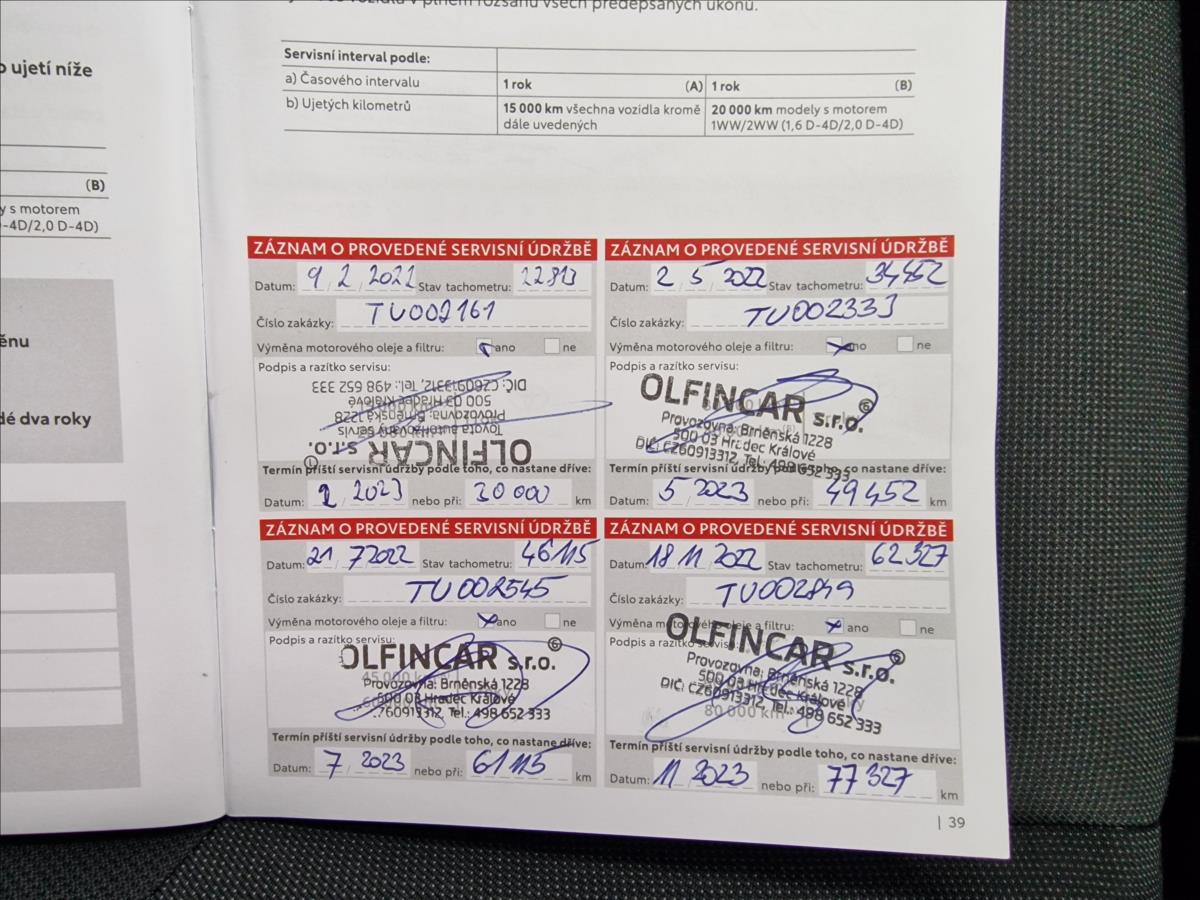 vozidla v plném rozsahu všech předepsaných úkonů.
o ujetí níže
Servisní interval podle:
a) Časového intervalu 1 rok (A) 1 rok (B)
b) Ujetých kilometrů 15 000 km všechna vozidla kromě 20 000 km modely s motorem
dále uvedených 1WW/2WW (1,6 D-4D/2,0 D-4D)
(B)
y s motorem
D-4D/2,0 D-4D)
ěnu
dé dva roky
ZÁZNAM O PROVEDENÉ SERVISNÍ ÚDRŽBĚ
Datum: 9 2 2022 Stav tachometru: 22813
Číslo zakázky: TU002161
Výměna motorového oleje a filtru: ano ne
Podpis a razítko servisu:
DIČ: CZ60913312, Tel.: 498 652 333
500 03 Hradec Králové
Provozovna: Brněnská 1228
Toyota autorizovaný servis
OLFINCAR s.r.o.
Termín příští servisní údržby podle toho, co nastane dříve:
Datum: 2 2023 nebo při: 30 000 km
ZÁZNAM O PROVEDENÉ SERVISNÍ ÚDRŽBĚ
Datum: 2 5 2022 Stav tachometru: 34452
Číslo zakázky: TU002333
Výměna motorového oleje a filtru: ano ne
Podpis a razítko servisu:
OLFINCAR s.r.o. 6
Provozovna: Brněnská 1228
500 03 Hradec Králové
DIČ: CZ60913312, Tel.: 498 652 333
Termín příští servisní údržby podle toho, co nastane dříve:
Datum: 5 2023 nebo při: 49452 km
ZÁZNAM O PROVEDENÉ SERVISNÍ ÚDRŽBĚ
Datum: 21 7 2022 Stav tachometru: 46115
Číslo zakázky: TU002545
Výměna motorového oleje a filtru: ano ne
Podpis a razítko servisu:
OLFINCAR s.r.o. 6
Provozovna: Brněnská 1228
500 03 Hradec Králové
760913312, Tel.: 498 652 333
Termín příští servisní údržby podle toho, co nastane dříve:
Datum: 7 2023 nebo při: 61115 km
ZÁZNAM O PROVEDENÉ SERVISNÍ ÚDRŽBĚ
Datum: 18 11 2022 Stav tachometru: 62327
Číslo zakázky: TU002849
Výměna motorového oleje a filtru: ano ne
Podpis a razítko servisu:
OLFINCAR s.r.o. 6
Provozovna: Brněnská 1228
500 03 Hradec Králové
DIČ: CZ60913312, Tel.: 498 652 333
80 000 km
Termín příští servisní údržby podle toho, co nastane dříve:
Datum: 11 2023 nebo při: 77327 km
| 39